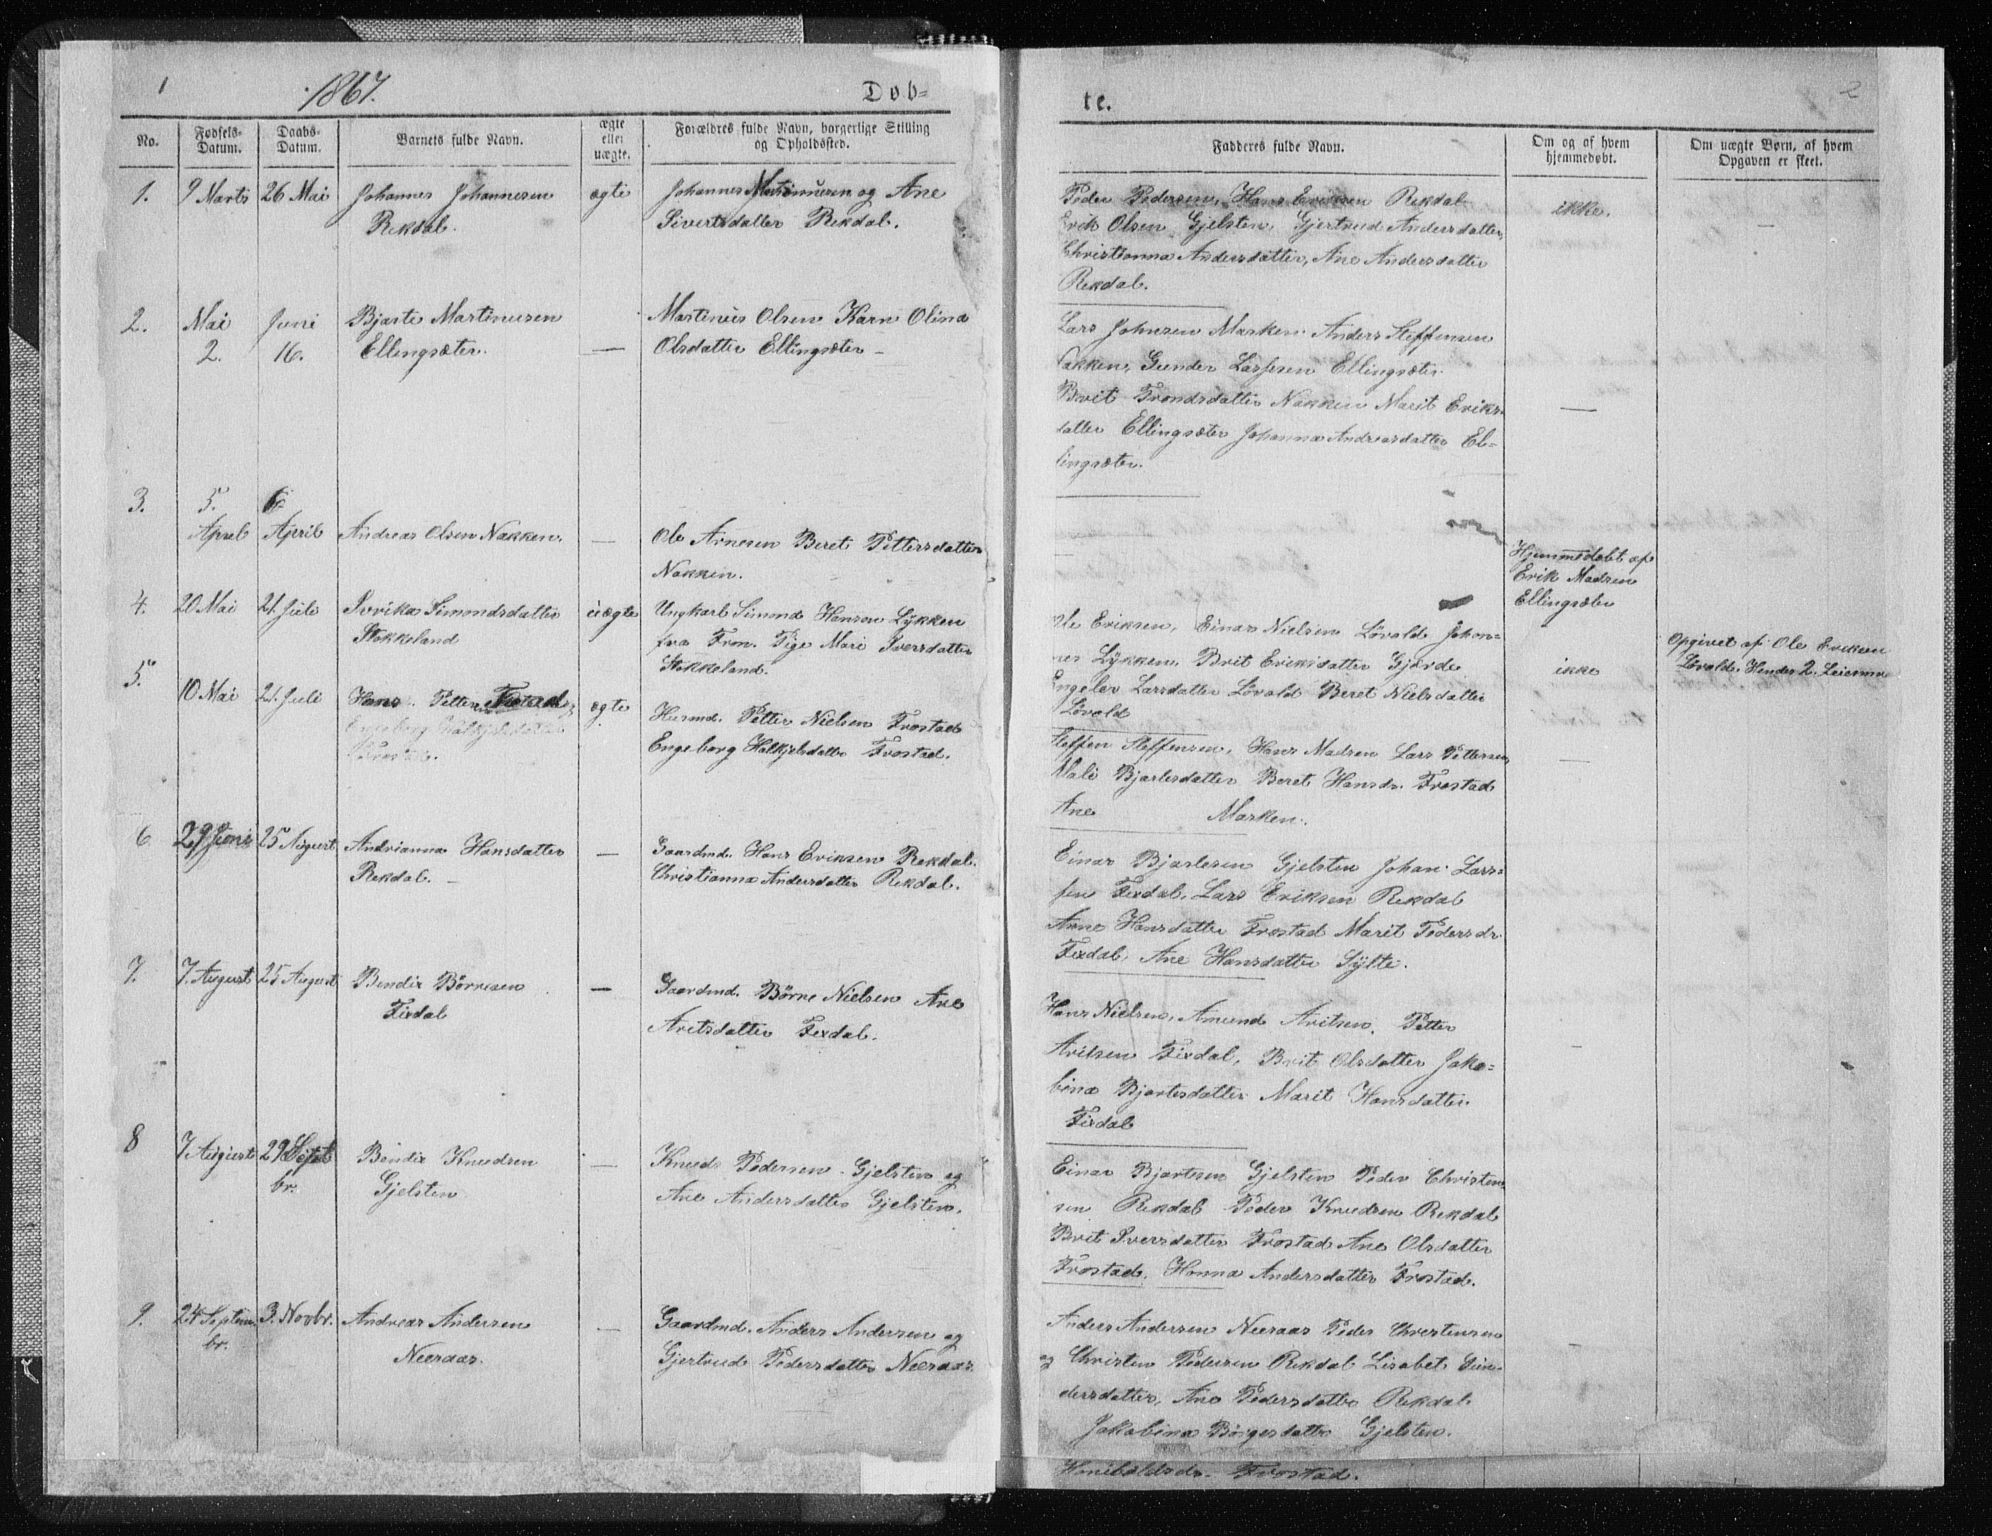 1
1867.
Dob-
te.
2
No.
Fødsels-
Datum.
Daabs-
Datum.
Barnets fulde Navn.
ægte
eller
uægte.
Forældres fulde Navn, borgerlige Stilling
og Opholdssted.
Fadderes fulde Navn.
Om og af hvem
hjemmedøbt.
Om uægte Børn, af hvem
Opgaven er skeet.
1. 9 Marts 26 Mai Johannes Johannesen
Rekdal.
ægte
Johannes Martinusen og Ane
Sivertsdatter Rekdal.
Peder Pedersen, Hans Eriksen Rekdal
Erik Olsen Gjelsten, Gjertrud Andersdatter,
Christianna Andersdatter, Ane Andersdatter
Rekdal.
ikke.
—
2. Mai
2.
Juni
16.
Bjarte Martinusen
Ellingsæter.
—
Martinus Olsen Karn Olina
Olsdatter Ellingsæter –
Lars Johnsen Marken Anders Steffensen
Nakken, Gunder Larsen Ellingsæter
Berit Trondsdatter Nakken Marit Eriks-
datter Ellingsæter Johanna Andreasdatter El-
lingsæter.
—
3. 5.
April
6
April
Andreas Olsen Nakken.
—
Ole Arnesen Beret Pettersdatter
Nakken.
Hjemmedøbt af
Erik Madsen
Ellingsæter
4. 20 Mai 21 Juli Iverika Simondsdatter
Stokkeland
uægte
Ungkarl Simond Hansen Lykken
fra Fron. Pige Mari Iversdatter
Stokkeland.
Ole Eriksen, Einar Nielsen Lovald Johan-
nes Lykken, Brit Eriksdatter Gjærde
Engeler Larsdatter Lovald Beret Nielsdatter
Lovald
ikke
Opgivet af Ole Eriksen
Lovald. Hendes 2. Leiermaal
5. 10 Mai 21 Juli Hans Petter
ægte
Husmd. Petter Nielsen Frostad
Engeborg Halkjelsdatter Frostad.
Steffen Steffensen, Hans Madsen Lars Pettersen,
Mali Bjartesdatter Beret Hansdr. Frostad
Ane Marken.
—
6 29 Juni 25 August Andrianna Hansdatter
Rekdal. –
—
Gaardmd. Hans Eriksen Rekdal.
Christianna Andersdatter Rekdal.
Einar Bjartesen Gjelsten Johan Lars-
sen Fixdal, Lars Eriksen Rekdal
Anne Hansdatter Frostad Marit Pedersdr.
Fixdal, Ane Hansdatter Sylte.
7. 7. August 25 August Bendix Børnesen
Fixdal
—
Gaardmd. Børne Nielsen Ane
Aritsdatter Fixdal.
Hans Nielsen, Amund Aritsen, Petter
Aritsen Fixdal, Brit Olsdatter Jako-
bina Bjartesdatter Marit Hansdatter
Fixdal
8 7 August 29 Septb
br.
Bendix Knudsen
Gjelsten
—
Knud Pedersen Gjelsten og
Ane Andersdatter Gjelsten.
Einar Bjartsen Gjelsten Peder Christen-
sen Rekdal Peder Knudsen Rekdal
Brit Iversdatter Frostad Ane Olsdatter
Frostad, Hanna Andersdatter Frostad.
9. 24 Septem-
br.
3. Novbr. Andreas Andersen
Neeraas.
—
Gaardmd. Anders Andersen og
Gjertrud Pedersdatter Neeraas.
Anders Andersen Neeraas Peder Christensen
og Christen Pedersen Rekdal Lisabet Gun-
dersdatter, Ane Pedersdatter Rekdal
Jakobina Børgesdatter Gjelsten.
Frostad.